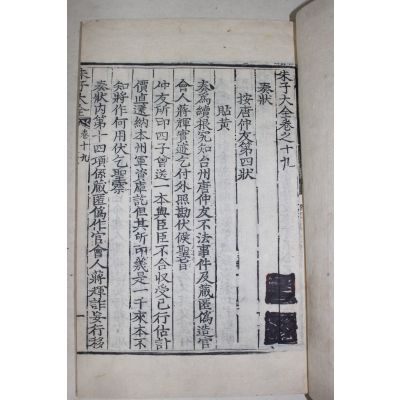 朱子大全卷之十九
奏狀
按唐仲友第四狀
貼黃
奏爲續根究知台州唐仲友不法事件及藏匿偽造官
會人蔣輝實迹乞付外照勘伏候聖旨
仲友所印四子曾送一本與臣臣不合收受已行估計
價直還納本州軍資庫訖但其所印幾是一千來本不
知將作何用伏乞聖察
奏狀內第十四項係藏匿偽作官會人蔣輝詐妄行移
朱子大全 卷十九